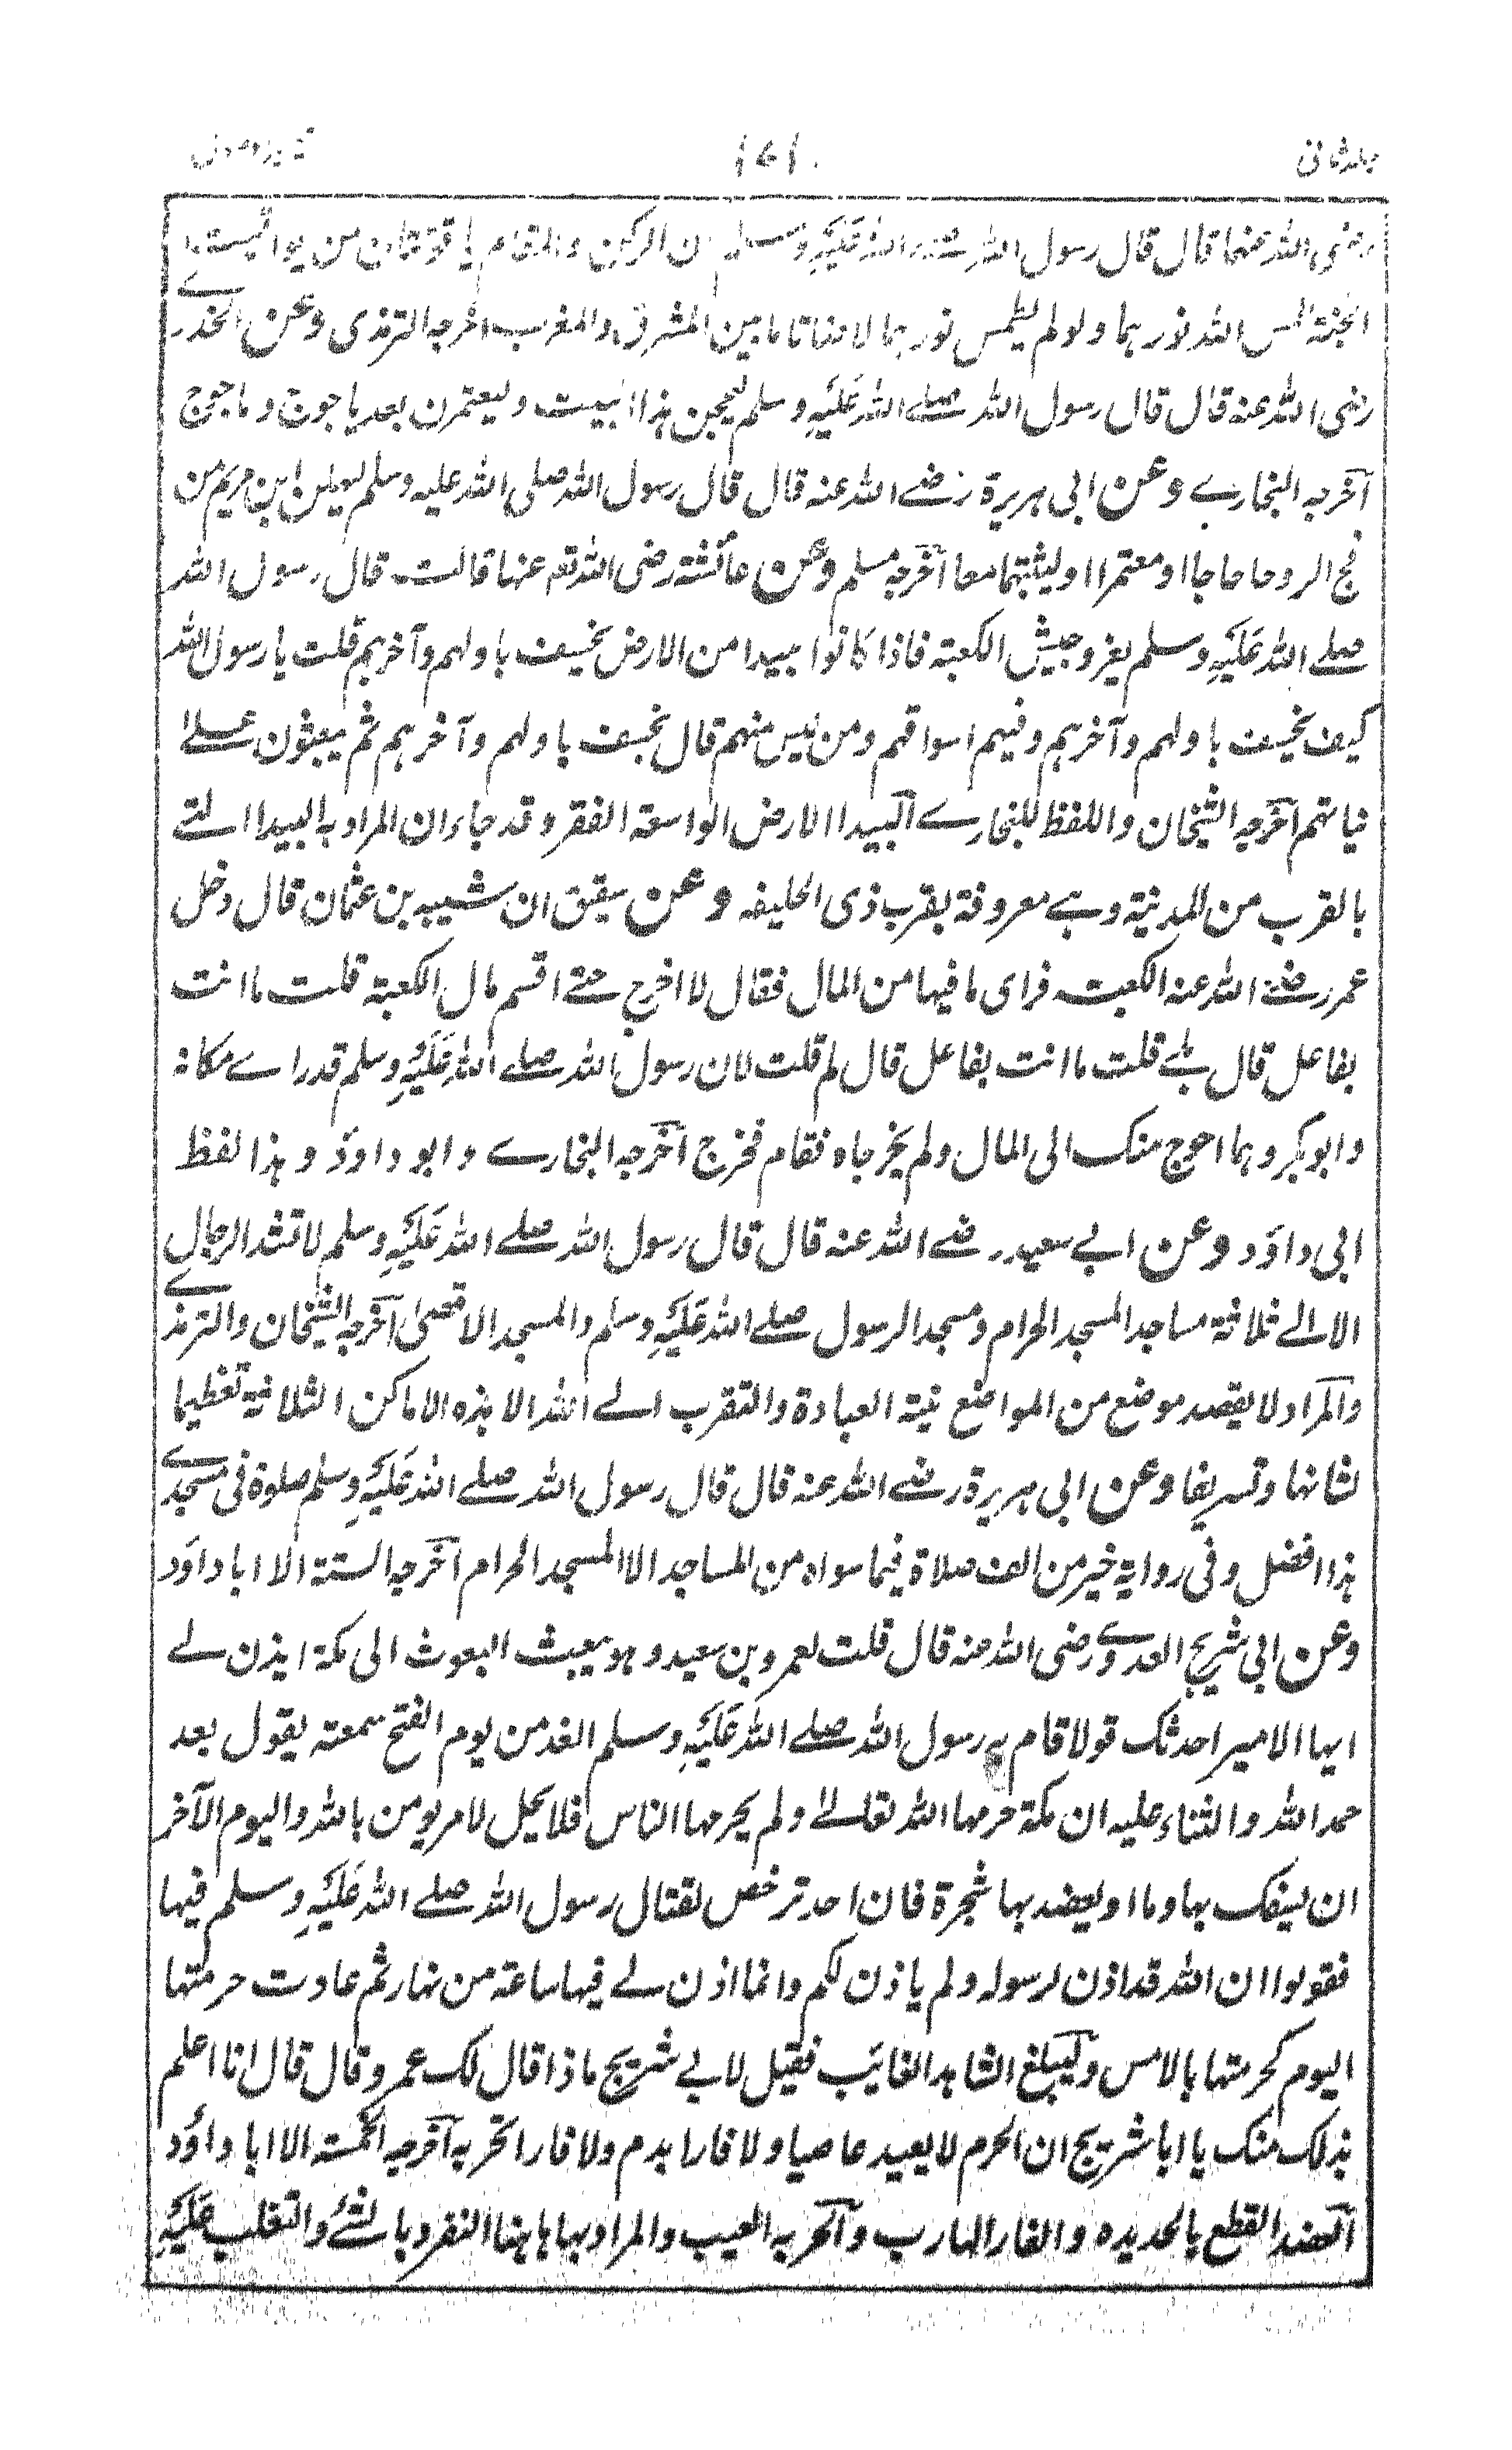 جلد ثانی
رضی الله عنهما قال قال رسول الله صلے الله عَلَيْهِ وسلم ان الرکن والمقام یاقوتتان من یواقیت
الجنة طمس الله نورہما ولو لم یطمس نورہما لاضاءتا ما بین المشرق والمغرب اخرجہ الترمذی وعن الخدرے
رضی الله عنہ قال قال رسول الله صلے الله عَلَيْهِ وسلم لیحجن ہذا البیت ولیعتمرن بعد یاجوج و ماجوج
آخرجہ البخارے وعن ابی ہریرة رضے الله عنہ قال قال رسول الله صلی الله علیہ وسلم لیہلن ابن مریم من
فج الروحا حاجا او معتمرا او لیثنیہما معا آخرجہ مسلم وعن عائشة رضی الله تعہ عنہا قالت قال رسول الله
صلے الله عَلَيْهِ وسلم یغزو جیش الکعبتہ فاذا کانوا ببیدا من الارض یخسف باولہم وآخرہم قلت یا رسول الله
کیف یخسف باولہم وآخرہم وفیہم اسواقہم ومن لیس منہم قال یخسف باولہم وآخرہم ثم یبعثون علے
نیاتہم آخرجہ الشیخان واللفظ للبخارے آلبیدا الارض الواسعة القفر وقد جاء ان المراد بہ البیدا التے
بالقرب من المدینة وہے معروفة بقرب ذی الحلیفہ وعن شقیق ان شیبہ بن عثمان قال دخل
عمر رضے الله عنہ الکعبتہ فرای ما فیہا من المال فقال لا اخرج حتے اقسم مال الکعبة قلت ما انت
بفاعل قال بلے قلت ما انت بفاعل قال لم قلت لان رسول الله صلے الله عَلَيْهِ وسلم قد راے مکانہ
وابوبکر وہما احوج منک الی المال ولم یخرجاہ فقام فخرج آخرجہ البخارے و ابو داود و ہذا لفظ
ابی داوَد وعن ابے سعید رضے الله عنہ قال قال رسول الله صلے الله عَلَيْهِ وسلم لا تشد الرحال
الا الے ثلاثة مساجد المسجد الحرام ومسجد الرسول صلے الله عَلَيْهِ وسلم والمسجد الاقصی آخرجہ الشیخان والترمذے
والمراد لا یقصد موضع من المواضع بنیة العبادة والتقرب الے الله الا ہذہ الاماکن الثلاثیة تعظیما
لشانہا وتشریفا وعن ابی ہریرة رضے الله عنہ قال قال رسول الله صلے الله عَلَيْهِ وسلم صلوة فی مسجدے
ہذا افضل و فی روایة خیر من الف صلاة فیما سواہ من المساجد الا المسجد الحرام آخرجہ الستة الا ابا داوَد
وعن ابی شریح العدوے رضی الله عنہ قال قلت لعمرو بن سعید و ہو یبعث البعوث الی مکة ایذن لے
ایہا الامیر احدثک قولا قام بہ رسول الله صلے الله عَلَيْهِ وسلم الغد من یوم الفتح سمعتہ یقول بعد
حمد الله والثناء علیہ ان مکة حرمہا الله تعالے ولم یحرمہا الناس فلا یحل لامر یومن بالله والیوم الآخر
ان یسفک بہا دما او یعضد بہا شجرة فان احد ترخص لقتال رسول الله صلے الله عَلَيْهِ وسلم فیہا
فقولوا ان الله قد اذن لرسولہ ولم یاذن لکم وانما اذن لے فیہا ساعة من نہار ثم عادت حرمتہا
الیوم کحرمتہا بالامس ولیبلغ الشاہد الغائب فقیل لابے شریح ماذا قال لک عمرو قال قال انا اعلم
بذلک منک یا ابا شریح ان الحرم لا یعید عاصیا ولا فارا بدم ولا فارا بخربہ آخرجہ الخمستہ الا ابا داوَد
آلعضد القطع بالحدیدہ والفار الہارب وآلخربہ العیب والمراد بہا ہاہنا التفرد بالشے والتغلب عَلَيْهِ